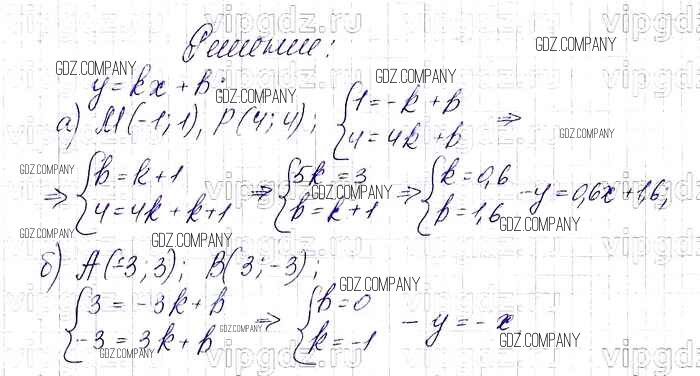 Решение:
y = kx + b.
а) M(-1; 1), P(4; 4); { 1 = -k + b
4 = 4k + b ⇒
⇒ { b = k + 1
4 = 4k + k + 1 ⇒ { 5k = 3
b = k + 1 ⇒ { k = 0,6
b = 1,6 - y = 0,6x + 1,6;
б) A(-3; 3); B(3; -3);
{ 3 = -3k + b
-3 = 3k + b ⇒ { b = 0
k = -1 - y = -x
GDZ.COMPANY
GDZ.COMPANY
GDZ.COMPANY
GDZ.COMPANY
GDZ.COMPANY
GDZ.COMPANY
GDZ.COMPANY
GDZ.COMPANY
GDZ.COMPANY
GDZ.COMPANY
GDZ.COMPANY
GDZ.COMPANY
GDZ.COMPANY
GDZ.COMPANY
vipgdz.ru
vipgdz.ru
vipgdz.ru
vipgdz.ru